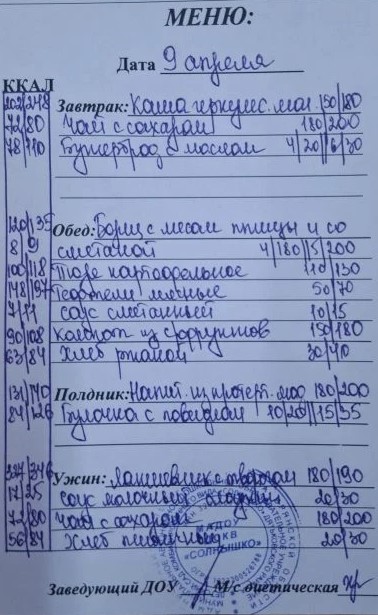 МЕНЮ:
Дата 9 апреля
ККАЛ
202/248 Завтрак: Каша геркулес. мол 150/180
72/80 Чай с сахаром 180/200
78/110 Бутерброд с маслом 4/20//6/30
120/135 Обед: Борщ с мясом птицы и со
8/9 сметаной 4/180//5/200
100/118 Пюре картофельное 110/130
148/197 Тефтели мясные 50/70
7/11 соус сметанный 10/15
90/108 Компот из сухофруктов 150/180
63/84 Хлеб ржаной 30/40
131/140 Полдник: Напит. из 180/200
84/126 Булочка с повидлом /15/35
Ужин: Лапшевник с творогом 180/190
17/25 соус молочный 20/30
72/80 Чай с сахаром 180/200
56/84 Хлеб пшеничный 20/30
МАДОУ
«СОЛНЫШКО»
Заведующий ДОУ М/с диетическая